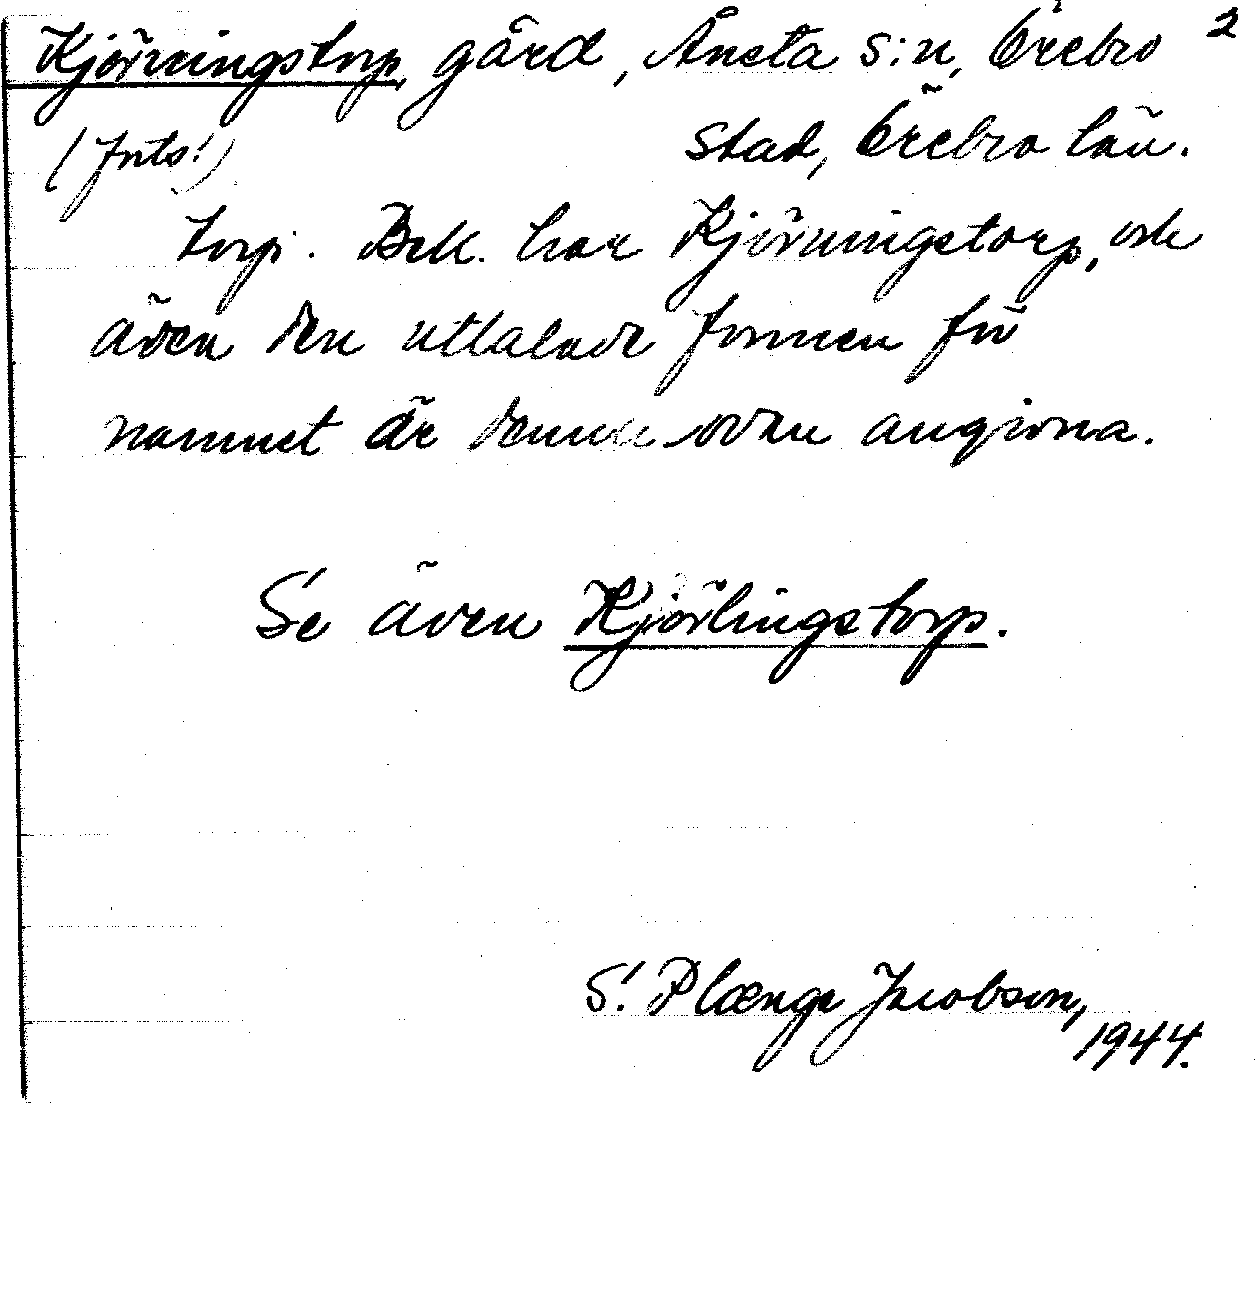 Kjörningstorp, gård, Ånsta s:n, Örebro 2
stad, Örebro län.
(forts.)
torp. Bek. har Kjörningstorp, och
även den uttalade formen för
namnet är denna ovan angivna.
Se även Kjörlingstorp.
S. Plænge Jacobson,
1944.